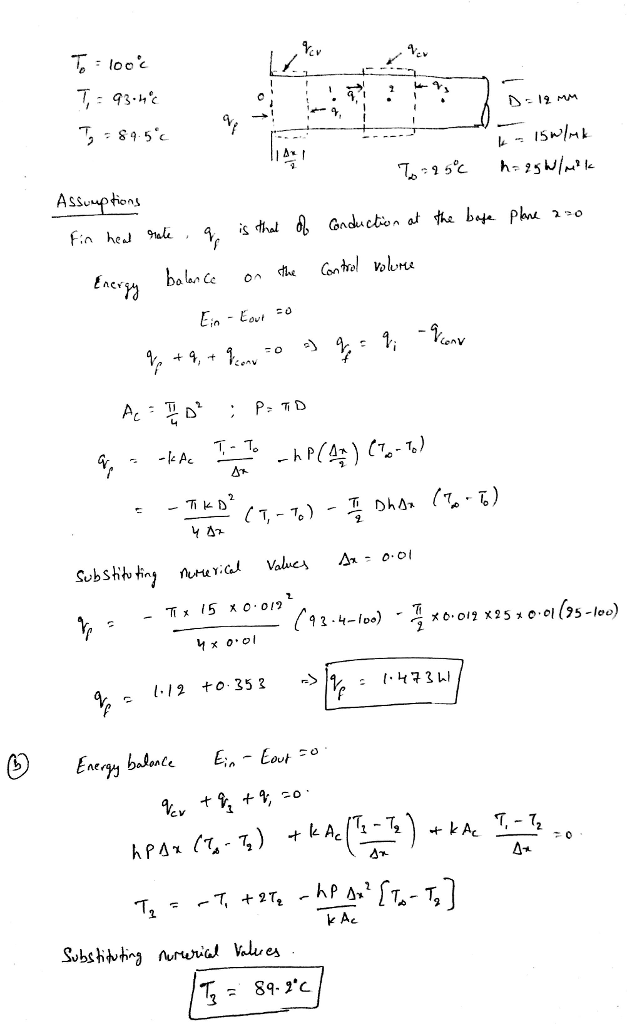 T₀ = 100°c
q_cv q_cv
T₁ = 93.4°c
0 1 q₁ 2 q₃
D = 12 MM
q_f q₁
T₂ = 89.5°c
k = 15W/Mk
Δx/2
T∞ = 25°C h = 25W/M²k
Assumptions
Fin heat rate, q_f is that of Conduction at the base plane x=0
Energy balance on the Control volume
Ein - Eout = 0
q_f + q₁ + q_conv = 0 ⇒ q_f = q_i - q_conv
Ac = π/4 D² ; P = πD
q_f = -kAc (T₁ - T₀)/Δx - hP(Δx/2) (T∞ - T₀)
= - πkD²/4Δx (T₁ - T₀) - π/2 DhΔx (T∞ - T₀)
Substituting numerical Values Δx = 0.01
q_f = - (π x 15 x 0.012²)/(4 x 0.01) (93.4-100) - π/2 x 0.012 x 25 x 0.01 (25-100)
q_f = 1.12 + 0.353 ⇒ q_f = 1.473W
(b) Energy balance Ein - Eout = 0
q_cv + q₃ + q₁ = 0
hPΔx (T∞ - T₂) + kAc ((T₃ - T₂)/Δx) + kAc (T₁ - T₂)/Δx = 0
T₃ = -T₁ + 2T₂ - hP/kAc Δx² [T∞ - T₂]
Substituting numerical Values.
T₃ = 89.2°C